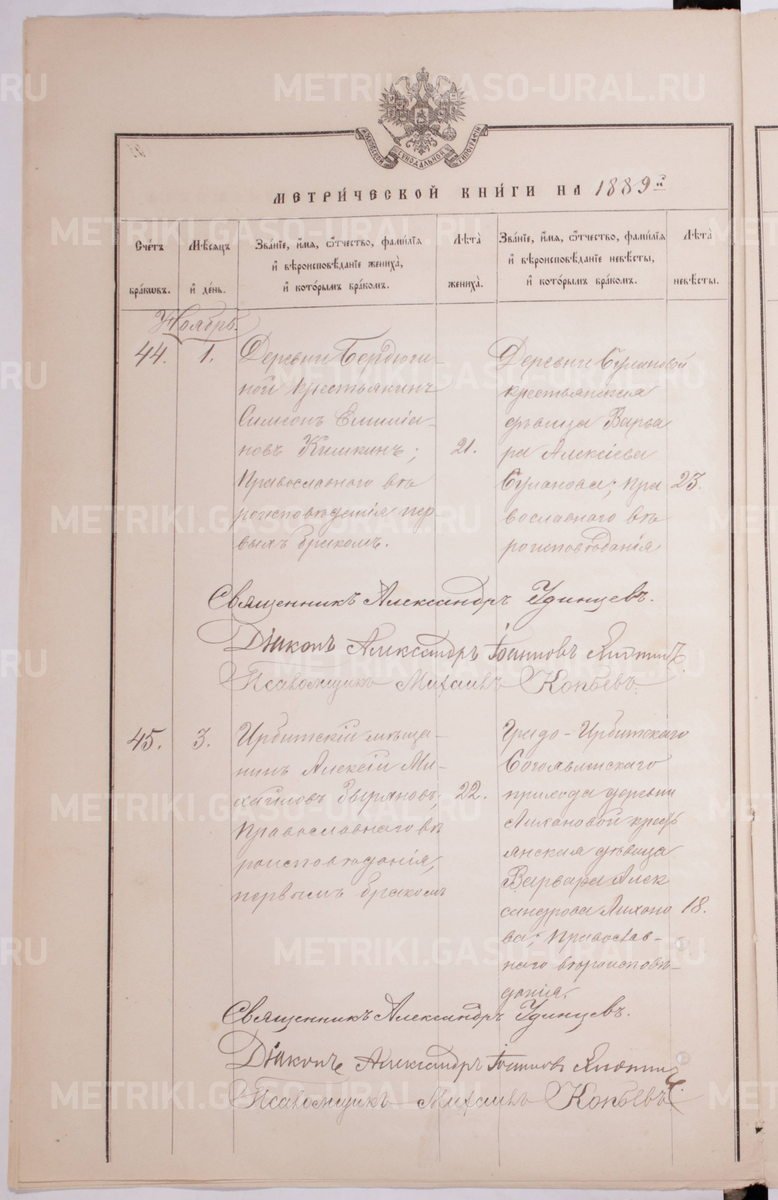 МЕТРИЧЕСКОЙ КНИГИ НА 1889 й
Счетъ браковъ.
Мѣсяцъ и день.
Званіе, имя, отчество, фамилія и вѣроисповѣданіе жениха, и которымъ бракомъ.
Лѣта жениха.
Званіе, имя, отчество, фамилія и вѣроисповѣданіе невѣсты, и которымъ бракомъ.
Лѣта невѣсты.
Ноябрь.
44.
1.
Деревни Бердюги-
ной крестьянинъ
Симеонъ Емилiа-
новъ Кишкинъ;
Православнаго вѣ
роисповѣданія пер
вымъ бракомъ.
21.
Деревни Булановой
крестьянская
дѣвица Варва
ра Алексіева
Буланова; пра
вославнаго вѣ
роисповѣданія
23.
Священникъ Александръ Удинцевъ.
Діаконъ Александръ Іоанновъ
Псаломщикъ Михаилъ Копьевъ.
45.
3.
Ирбитскій мѣща-
нинъ Алексій Ми-
хайловъ
Православнаго вѣ
роисповѣданія,
первымъ бракомъ
22.
Градо-Ирбитскаго
Богоявленскаго
прихода деревни
Лихановой крест
янская дѣвица
Варвара Алек
сандрова Лихано
ва; Православ-
наго вѣроисповѣ-
данія.
18.
Священникъ Александръ Удинцевъ.
Діаконъ Александръ Іоанновъ
Псаломщикъ Михаилъ Копьевъ.
METRIKI.GASO-URAL.RU